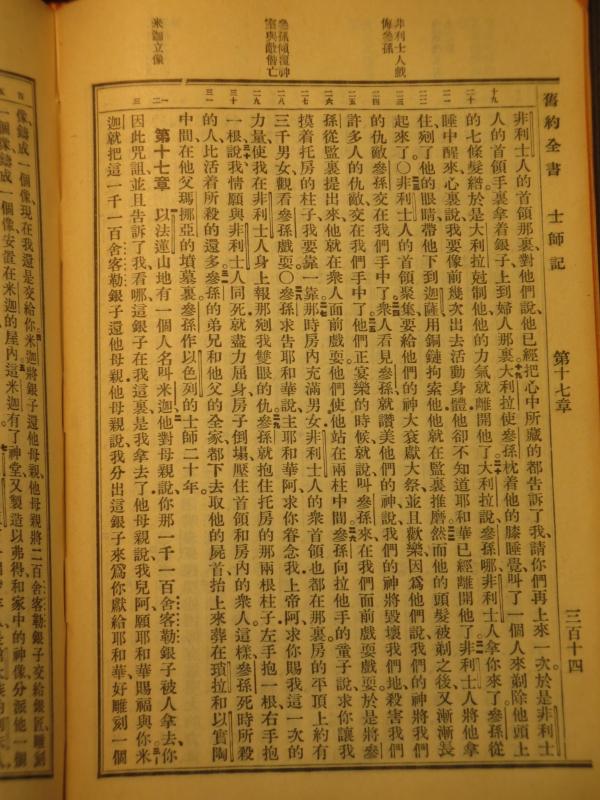 舊約全書　士師記　第十七章　三百十四
非利士人戲侮參孫
參孫傾覆神室與敵偕亡
米迦立像
非利士人的首領那裏、對他們說、他已經把心中所藏的都告訴了我、請你們再上來一次、於是非利士
人的首領手裏拿着銀子、上到婦人那裏。大利拉使參孫枕着他的膝睡覺、叫了一個人來剃除他頭上
的七條髮綹、於是大利拉尅制他、他的力氣就離開他了。大利拉說、參孫哪、非利士人拿你來了、參孫從
睡中醒來、心裏說、我要像前幾次出去活動身體、他卻不知道耶和華已經離開他了。非利士人將他拿
住、剜了他的眼睛、帶他下到迦薩、用銅鏈拘索他、他就在監裏推磨。然而他的頭髮被剃之後、又漸漸長
起來了。○非利士人的首領聚集、要給他們的神大衮獻大祭、並且歡樂、因爲他們說、我們的神將我們
的仇敵參孫交在我們手中了。衆人看見參孫、就讚美他們的神說、我們的神將毀壞我們地、殺害我們
許多人的仇敵交在我們手中了。他們正宴樂的時候、就說、叫參孫來、在我們面前戲耍戲耍、於是將參
孫從監裏提出來、他就在衆人面前戲耍、他們使他站在兩柱中間。參孫向拉他手的童子說、求你讓我
摸着托房的柱子、我要靠一靠。那時房內充滿男女、非利士人的衆首領也都在那裏、房的平頂上約有
三千男女、觀看參孫戲耍。○參孫求告耶和華說、主耶和華阿、求你眷念我、上帝阿、求你賜我這一次的
力量、使我在非利士人身上報那剜我雙眼的仇。參孫就抱住托房的那兩根柱子、左手抱一根、右手抱
一根。說、我情願與非利士人同死、就盡力屈身、房子倒塌、壓住首領和房內的衆人、這樣、參孫死時所殺
的人、比活着所殺的還多。參孫的弟兄和他父的全家、都下去取他的屍首、抬上來葬在瑣拉和以實陶
中間、在他父瑪挪亞的墳墓裏、參孫作以色列的士師二十年。
第十七章　以法蓮山地有一個人名叫米迦。他對母親說、你那一千一百舍客勒銀子被人拿去、你
因此咒詛、並且告訴了我、看哪、這銀子在我這裏、是我拿去了、他母親說、我兒阿、願耶和華賜福與你。米
迦就把這一千一百舍客勒銀子還他母親、他母親說、我分出這銀子來爲你獻給耶和華、好雕刻一個
像、鑄成一個像、現在我還是交給你。米迦將銀子還他母親、他母親將二百舍客勒銀子交給銀匠、雕刻
一個像、鑄成一個像、安置在米迦的屋內。這米迦有了神堂、又製造以弗得和家中的神像、分派他一個